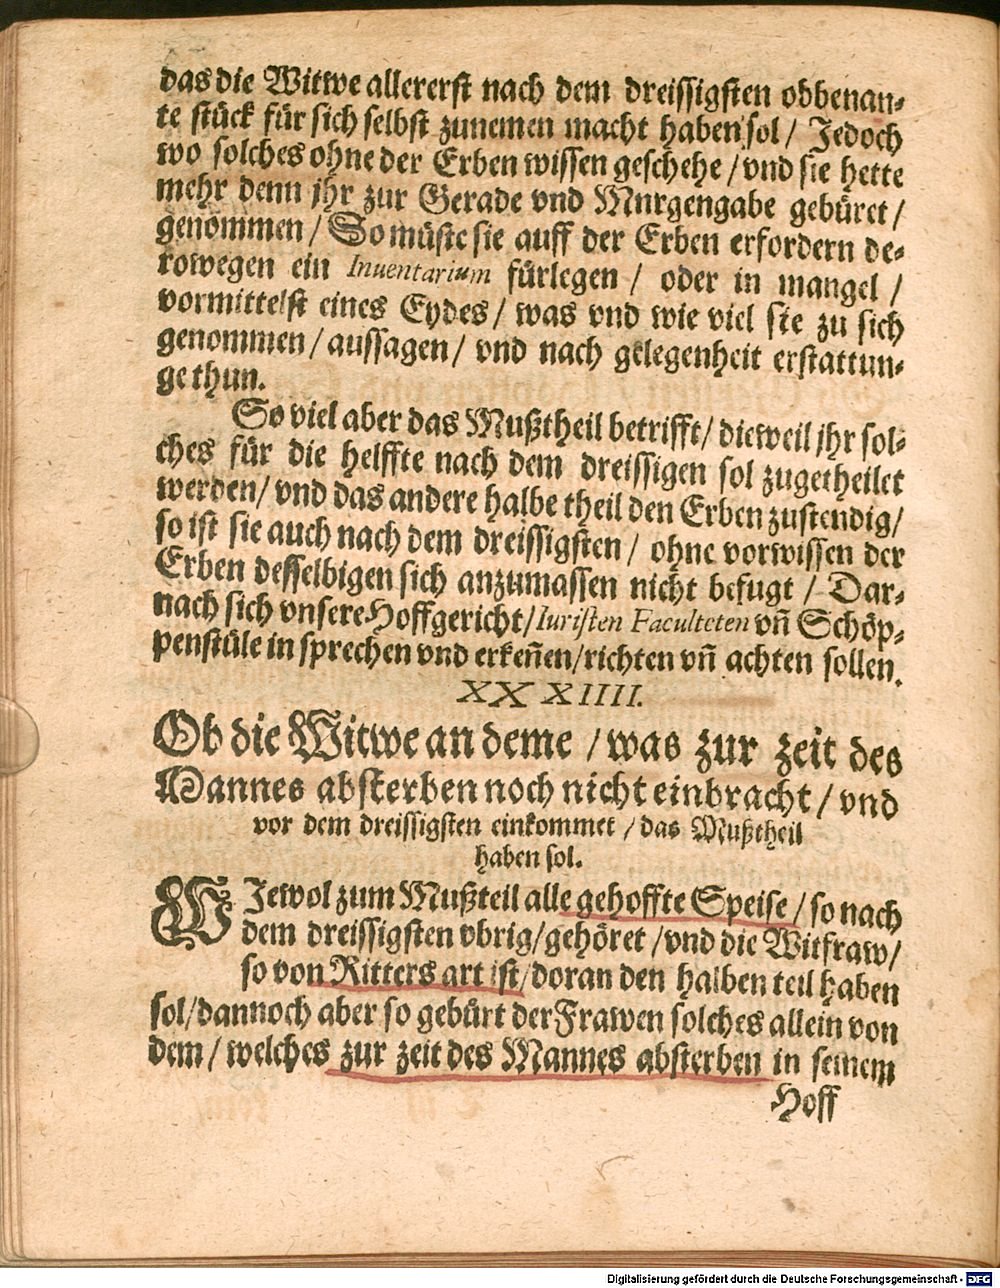 das die Witwe allererst nach dem dreissigsten obbenan-
te stück für sich selbst zunemen macht haben sol / Jedoch
wo solches ohne der Erben wissen geschehe / vnd sie hette
mehr denn jhr zur Gerade vnd Mnrgengabe gebüret /
genommen / So müste sie auff der Erben erfordern de-
rowegen ein Inuentarium fürlegen / oder in mangel /
vormittelst eines Eydes / was vnd wie viel sie zu sich
genommen / aussagen / vnd nach gelegenheit erstattun-
ge thun.
So viel aber das Mußtheil betrifft / dieweil jhr sol-
ches für die helffte nach dem dreissigen sol zugetheilet
werden / vnd das andere halbe theil den Erben zustendig /
so ist sie auch nach dem dreissigsten / ohne vorwissen der
Erben desselbigen sich anzumassen nicht befugt / Dar-
nach sich vnsere Hoffgericht / Iuristen Faculteten vn̄ Schöp-
penstüle in sprechen vnd erkeñen / richten vn̄ achten sollen.
XXXIIII.
Ob die Witwe an deme / was zur zeit des
Mannes absterben noch nicht einbracht / vnd
vor dem dreissigsten einkommet / das Mußtheil
haben sol.
WJewol zum Mußteil alle gehoffte Speise / so nach
dem dreissigsten vbrig / gehöret / vnd die Witfraw /
so von Ritters art ist / doran den halben teil haben
sol / dannoch aber so gebürt der Frawen solches allein von
dem / welches zur zeit des Mannes absterben in seinem
Hoff
Digitalisierung gefördert durch die Deutsche Forschungsgemeinschaft - DFG